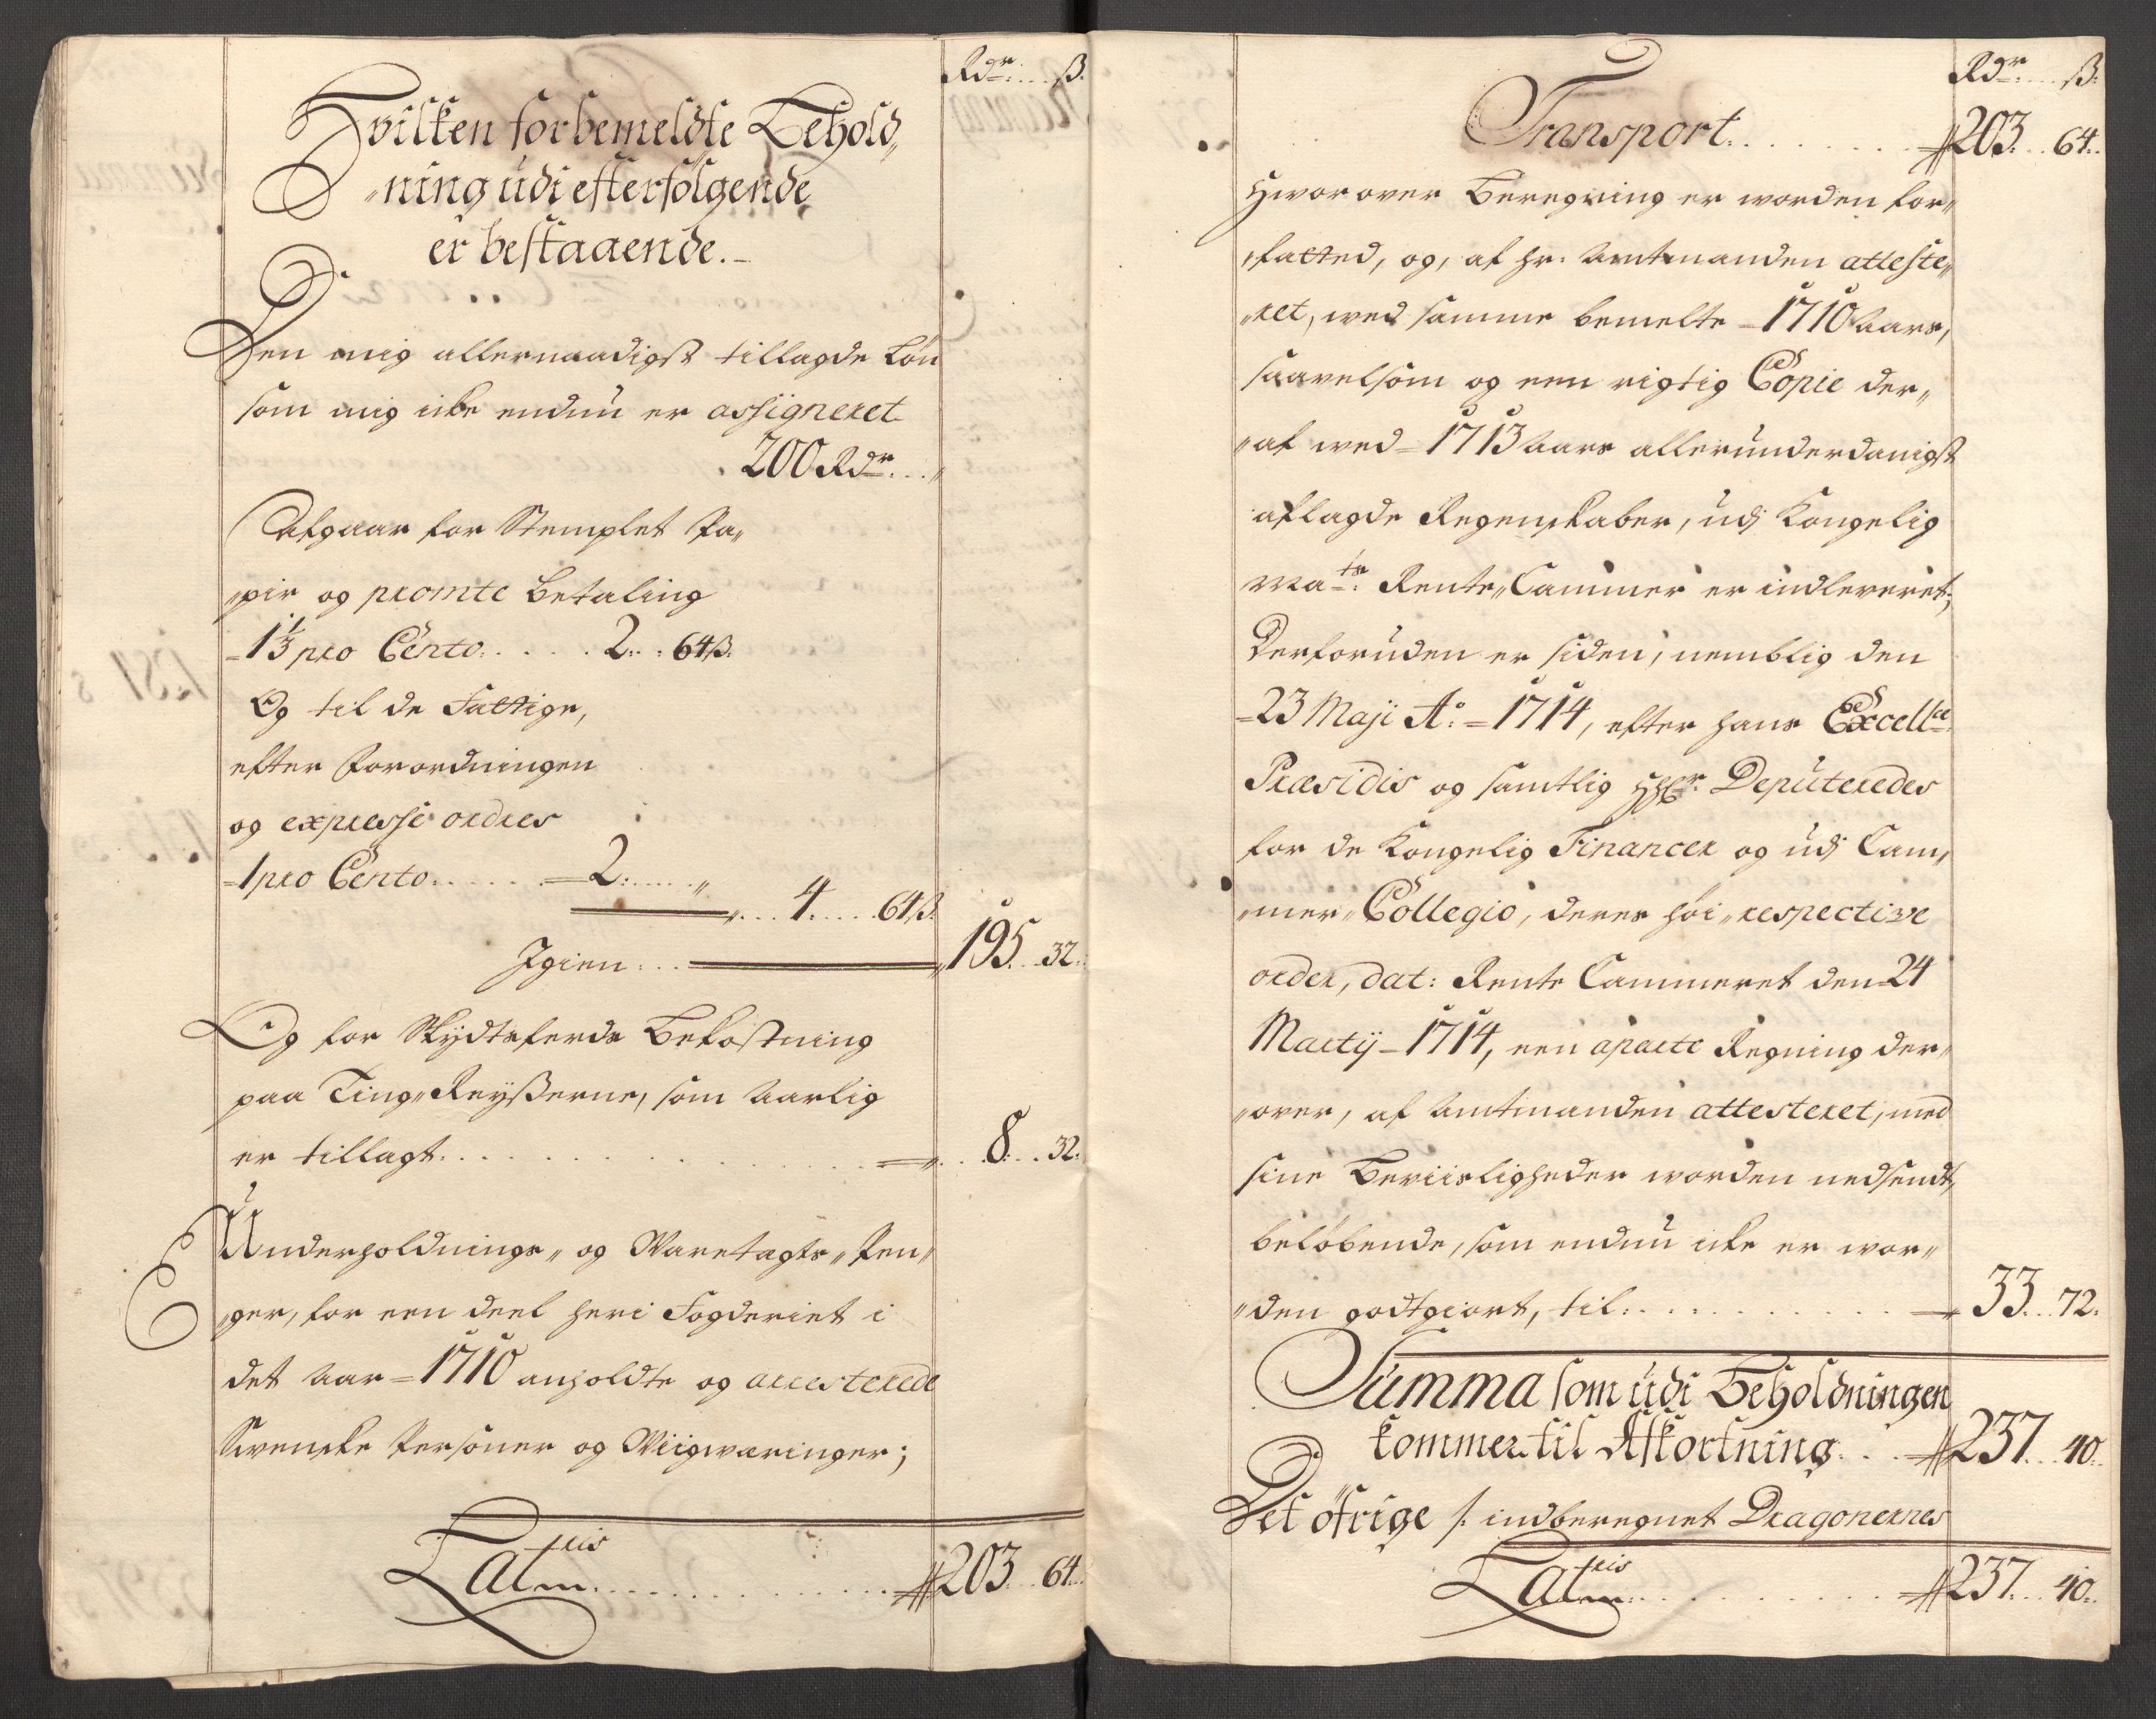 Rdr: ß.
Hvilken forbemeldte Behold„
„ning udi efterfølgende
er bestaaende.
Den mig allernaadigst tillagde Løn
som mig icke endnu er assigneret
200 Rdr
Afgaar for Stemplet Pa„
„pir og promte betaling
1⅓ pro Cento 2 64ß.
Og til de Fattige,
efter Forordningen
og expresse ordres
1 pro Cento 2 „
4 64ß.
Igien 195 32.
Og for Skydtsferds Bekostning
paa Ting„Reyßerne, som Aarlig
er tillagt 8 32.
Underholdnings„ og Varetagts„Pen„
„ger, for een deel heri Fogderiet i
det Aar 1710 anholdte og arresterede
Svenske Persohner og Viigværinger;
Lateris 203 64
Rdr ß:
Transport 203 64.
Hvorover Beregning er worden for„
„fatted, og, af Hr. Amtmanden atteste„
„ret, wed samme bemelte 1710 Aars,
saavelsom og een rigtig Copie der„
„af wed 1713 Aars allerunderdanigst
aflagde Regenskaber, udj Kongelig
Mats: Rente„Cammer er indleveret;
Derforuden er siden, nemblig den
23 Maji Ao: 1714, efter hans Excellce
Præsidis og samtlig HHr. Deputeredes
for de Kongelig Financer og udj Cam„
„mer„Collegio, deres høi„respective
order, dat: Rente Cammeret den 24
Martij 1714, een aparte Regning der„
„over, af Amtmanden attesteret, med
sine Beviisligheder worden nedsendt,
beløbende, som endnu icke er wor„
„den godtgiort, til 33 72.
Summa som udi Beholdningen
kommer til Afkortning 237 40.
Det öfrige /: indberegnet Dragonernes
Lateris 237 40.